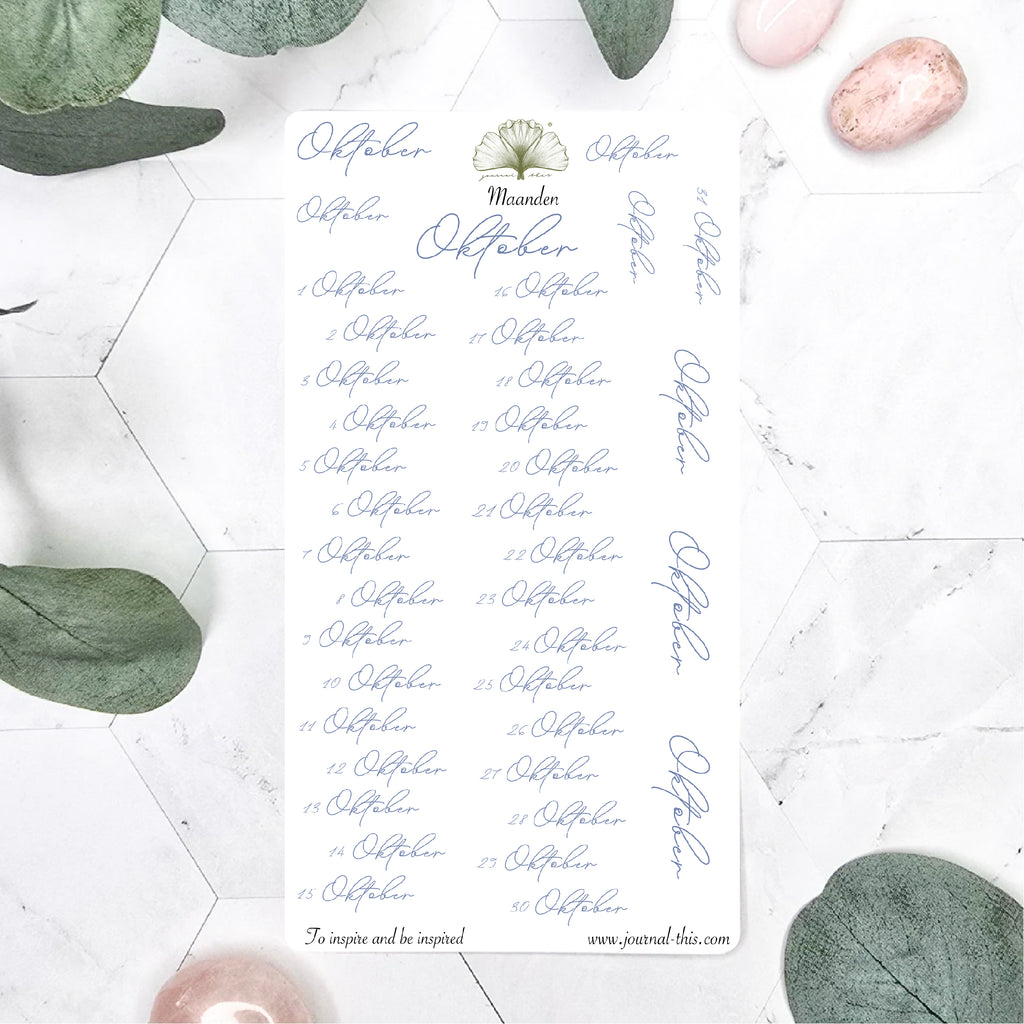 Oktober
Oktober
journal this
Maanden
Oktober
Oktober
Oktober
31 Oktober
1 Oktober
2 Oktober
3 Oktober
4 Oktober
5 Oktober
6 Oktober
7 Oktober
8 Oktober
9 Oktober
10 Oktober
11 Oktober
12 Oktober
13 Oktober
14 Oktober
15 Oktober
16 Oktober
17 Oktober
18 Oktober
19 Oktober
20 Oktober
21 Oktober
22 Oktober
23 Oktober
24 Oktober
25 Oktober
26 Oktober
27 Oktober
28 Oktober
29 Oktober
30 Oktober
Oktober
Oktober
Oktober
To inspire and be inspired
www.journal-this.com